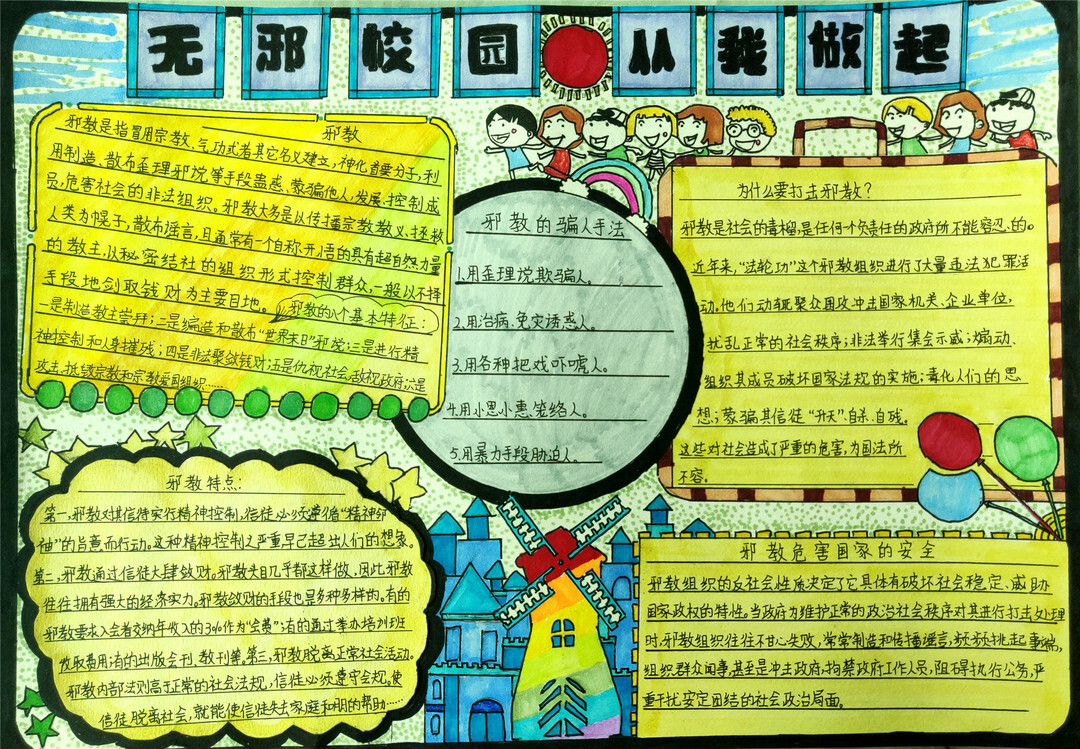 无邪校园从我做起
邪教
邪教是指冒用宗教、气功或者其它名义建立,神化首要分子,利
用制造、散布歪理邪说等手段蛊惑、蒙骗他人,发展、控制成
员,危害社会的非法组织。邪教大多是以传播宗教教义、拯救
人类为幌子,散布谣言,且通常有一个自称开悟的具有超自然力量
的教主,以秘密结社的组织形式控制群众,一般以不择
手段地敛取钱财为主要目地。
邪教的六个基本特征:
一是制造教主崇拜;二是编造和散布“世界末日”邪说;三是进行精
神控制和人身摧残;四是非法聚敛钱财;五是仇视社会,敌视政府;六是
攻击、抵毁宗教和宗教爱国组织……
邪教的骗人手法
1.用歪理说欺骗人。
2.用治病、免灾诱惑人。
3.用各种把戏吓唬人。
4.用小恩小惠笼络人。
5.用暴力手段胁迫人。
为什么要打击邪教?
邪教是社会的毒榴,是任何个负责任的政府所不能容忍的。
近年来,“法轮功”这个邪教组织进行了大量违法犯罪活
动,他们动辄聚众围攻冲击国家机关、企业单位,
扰乱正常的社会秩序;非法举行集会示威;煽动、
组织其成员破坏国家法规的实施;毒化人们的思
想;蒙骗其信徒“升天”、自杀、自残。
这些对社会造成了严重的危害,为国法所
不容。
邪教特点:
第一,邪教对其信徒实行精神控制,信徒必须遵循“精神领
袖”的旨意而行动。这种精神控制之严重早已超出人们的想象。
第二,邪教通过信徒大肆敛财。邪教头目几乎都这样做,因此邪教
往往拥有强大的经济实力。邪教敛财的手段也是多种多样的。有的
邪教要求入会者交纳年收入的3%作为“会费”;有的通过举办培训班
收取费用;有的出版会刊、教刊等。第三,邪教脱离正常社会活动。
邪教内部法则高于正常的社会法规,信徒必须遵守会规。使
信徒脱离社会,就能使信徒失去家庭和朋的帮助……
邪教危害国家的安全
邪教组织的反社会性质决定了它具体有破坏社会稳定、威胁
国家政权的特性。当政府为维护正常的政治社会秩序对其进行打击处理
时,邪教组织往往不甘心失败,常常制造和传播谣言,频频挑起事端,
组织群众闹事,甚至是冲击政府,拘禁政府工作人员,阻碍执行公务,严
重干扰安定团结的社会政治局面。